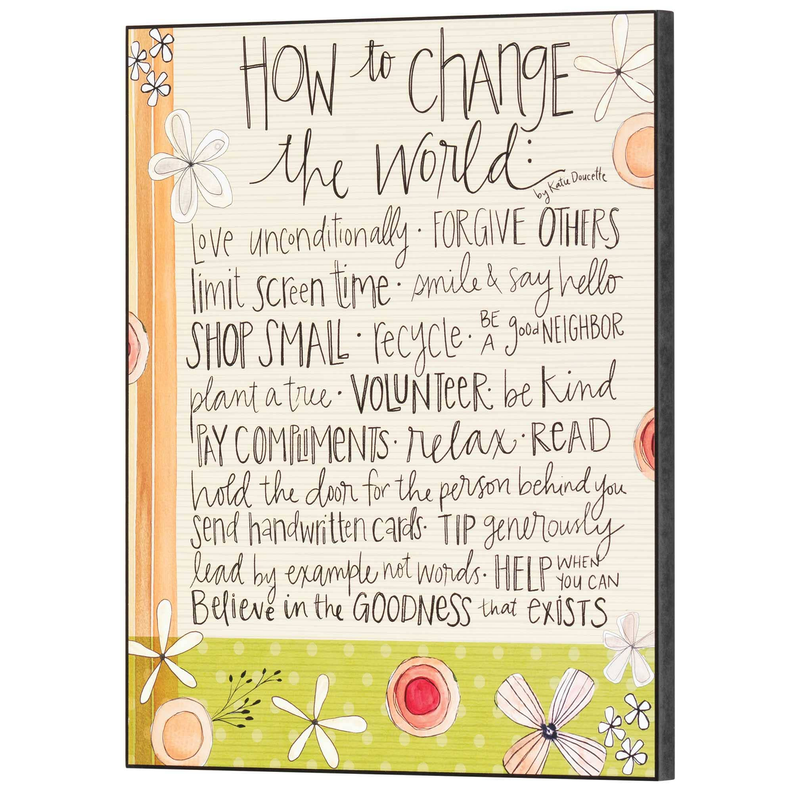 HOW to CHANGE
the World:
by Katie Doucette
Love unconditionally · FORGIVE OTHERS
limit screen time · smile & say hello
SHOP SMALL · recycle · BE A good NEIGHBOR
plant a tree · VOLUNTEER · be kind
PAY COMPLIMENTS · relax · READ
hold the door for the person behind you
send handwritten cards · TIP generously
lead by example not words · HELP WHEN YOU CAN
Believe in the GOODNESS that EXISTS